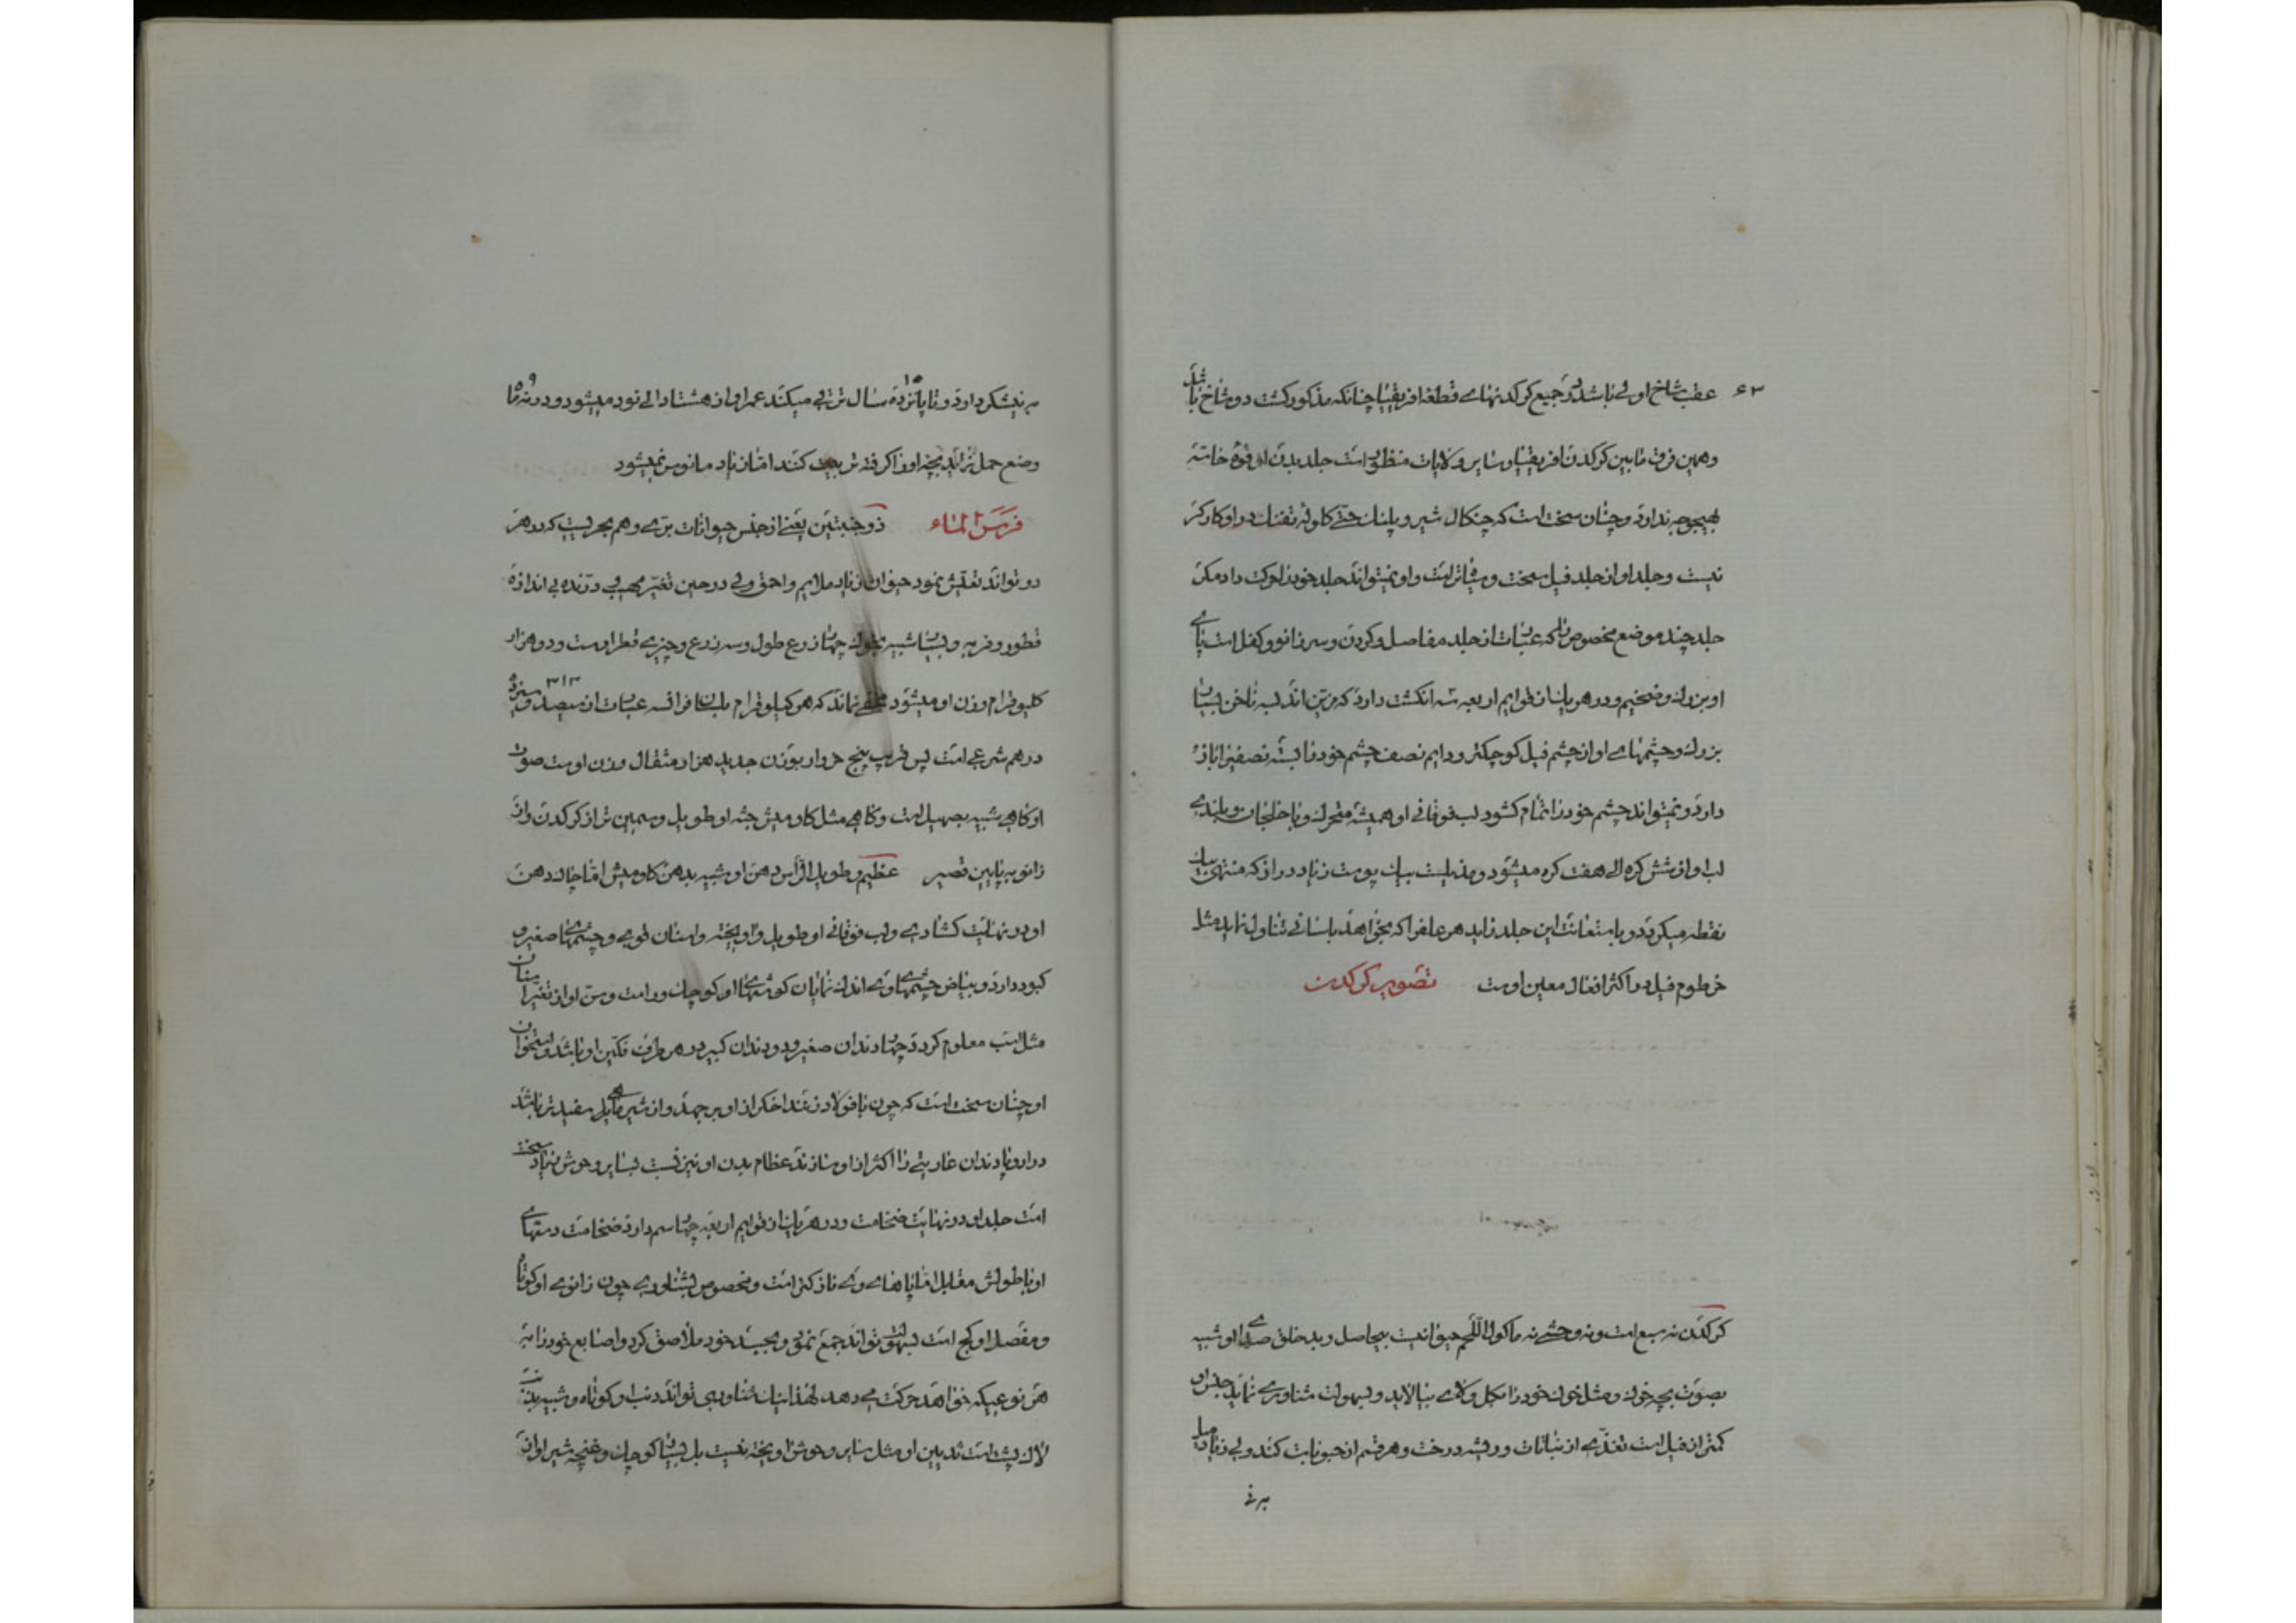 ۶۳
عقب شاخ اولی باشد در جمیع کرکدنهای قطعهٔ افریقیا چنانکه مذکور گشت دو شاخ باشد
و همین فرق مابین کرکدن افریقیا و سایر ولایات منظور است جلد بدن او قوهٔ خاسته
بهیچوجه ندارد و چنان سخت است که چنکال شیر و پلنک حتی کلوله تفنک در او کارکر
نیست و جلد او از جلد فیل سخت و سیاه‌تر است و او نمیتواند جلد خود را حرکت داد مکر
جلد چند موضع مخصوص را که عبارت از جلد مفاصل و کردن و سر زانو و کفل است پای
او بزرک و ضخیم و در هر یک از قوایم اربعه سه انکشت دارد که مزین اند بسه ناخن بسیار
بزرک و چشمهای او از چشم فیل کوچکتر و دایم نصف چشم خود را بسته نصفیرا باز
دارد و نمیتواند چشم خود را تمام کشود لب فوقانی او همیشه متحرک و با خلجان و بلندی
لب او از شش کره الی هفت کره میشود و مذیلست بیک پوست زیاد دراز که منتهی بیک
نقطه میکردد و باستعانت این جلد زاید هر علفرا که بخواهد باسانی تناول نماید مثل
خرطوم فیل در اکثر افعال معین اوست تصویر کرکدن
کرکدن نه سبع است و نه وحشی نه ماکول اللحم حیوانیست بیحاصل و بد خلق صدای او شبیه
بصوت بچه خوک و مثل خوک خود را بکل و لای بیالاید و بسهولت شناوری نماید جنس او
کمتر از فیل است تغذی از نباتات و ریشه درخت و هر قسم از حبوبات کند ولی زیاد میل
به نی
به نیشکر دارد و تا پانزده ۱۵ سال ترقی میکند عمر او از هشتاد الی نود میشود و در نه ۹ ماه
وضع حمل نماید بچه او را کرفته تربیت کنند اما زیاد مانوس نمیشود
فرس الماء ذو جنبتین یعنی از جنس حیوانات بری و هم بحریست که در هر
دو تواند تعیش نمود حیوان زیاد ملایم و احمق ولی در حین تغیر مهیب و درنده بی اندازه
قطور و فربه و بسیار شبیه بخوک چهار ذرع طول و سه ذرع و چیزی قطر اوست و دو هزار
کلیوقرام وزن او میشود مخفی نماند که هر کیلوقرام بلسان فرانسه عبارت از سیصد و سیزده ۳۱۳
درهم شرعی است پس قریب پنج خروار بوزن جدید هزار مثقال وزن اوست صوت
او کاهی شبیه بصهیل است و کاهی مثل کاومیش جثه او طویل و سمین تر از کرکدن و از
زانو به پایین قصیر عظیم و طویل الرأس دهن او شبیه بدهن کاومیش اما چاک دهن
او در نهایت کشادی و لب فوقانی او طویل و آویخته و اسنان قوی و چشمهای صغیر و
کبود دارد و بیاض چشمهای وی اندک نمایان کوشهای او کوچک و راست و سن او از تغیر اسنان
مثل اسب معلوم کردد چهار دندان صغیر و دو دندان کبیر در هر طرف فکین او باشد و استخوان
او چنان سخت است که چون با فولاد زنند اخکر از او بر جهد و از شیر ماهی بل سفیدتر باشد
در اروپا دندان عاریتی را اکثر از او سازند عظام بدن او نیز نسبت بسایر وحوش زیاد سخت
است جلد او در نهایت ضخامت و در هر یک از قوایم اربعه چهار سم دارد ضخامت دستهای
او با طولش مقابل اما پاهای وی نازکتر است و مخصوص بشناوری چون زانوی او کوتاه
و مفصل او کج است بسهولت تواند جمع نمود و بجسد خود ملاصق کرد و اصابع خود را به
هر نوعیکه خواهد حرکت می دهد لهذا نیک شناوری تواند ذنب او کوتاه و شبیه بذنب
لاک پشت است ثدیین او مثل سایر وحوش اویخته نیست بل بسیار کوچک و غنچه شیر او از